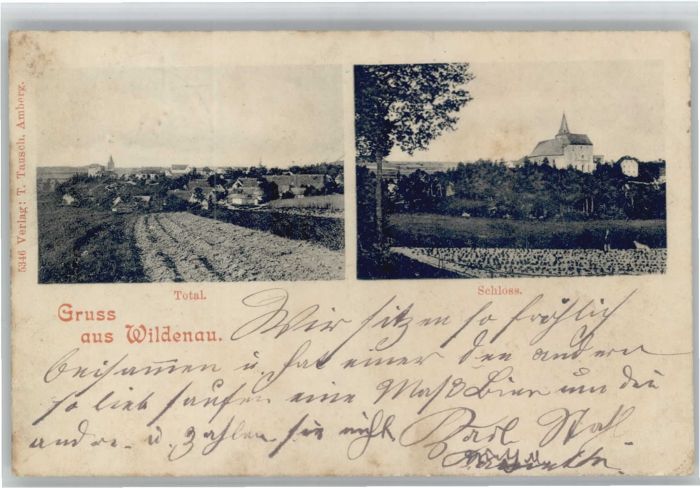 5346 Verlag: T. Tausch, Amberg.
Total.
Schloss.
Gruss
aus Wildenau.
Wir sitzen so fröhlich
beisammen u. hat einer den andern
so lieb saufen eine Maß Bier um die
andre. u. zahlen sie nicht